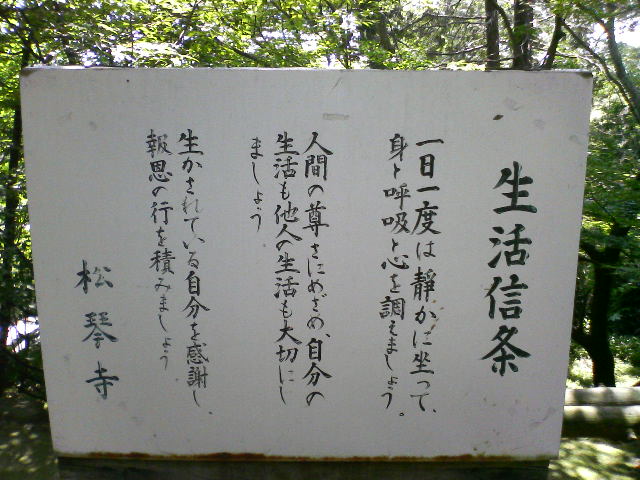 生活信条
一日一度は静かに坐って、
身と呼吸と心を調えましょう。
人間の尊さにめざめ、自分の
生活も他人の生活も大切にし
ましょう。
生かされている自分を感謝し、
報恩の行を積みましょう
松琴寺